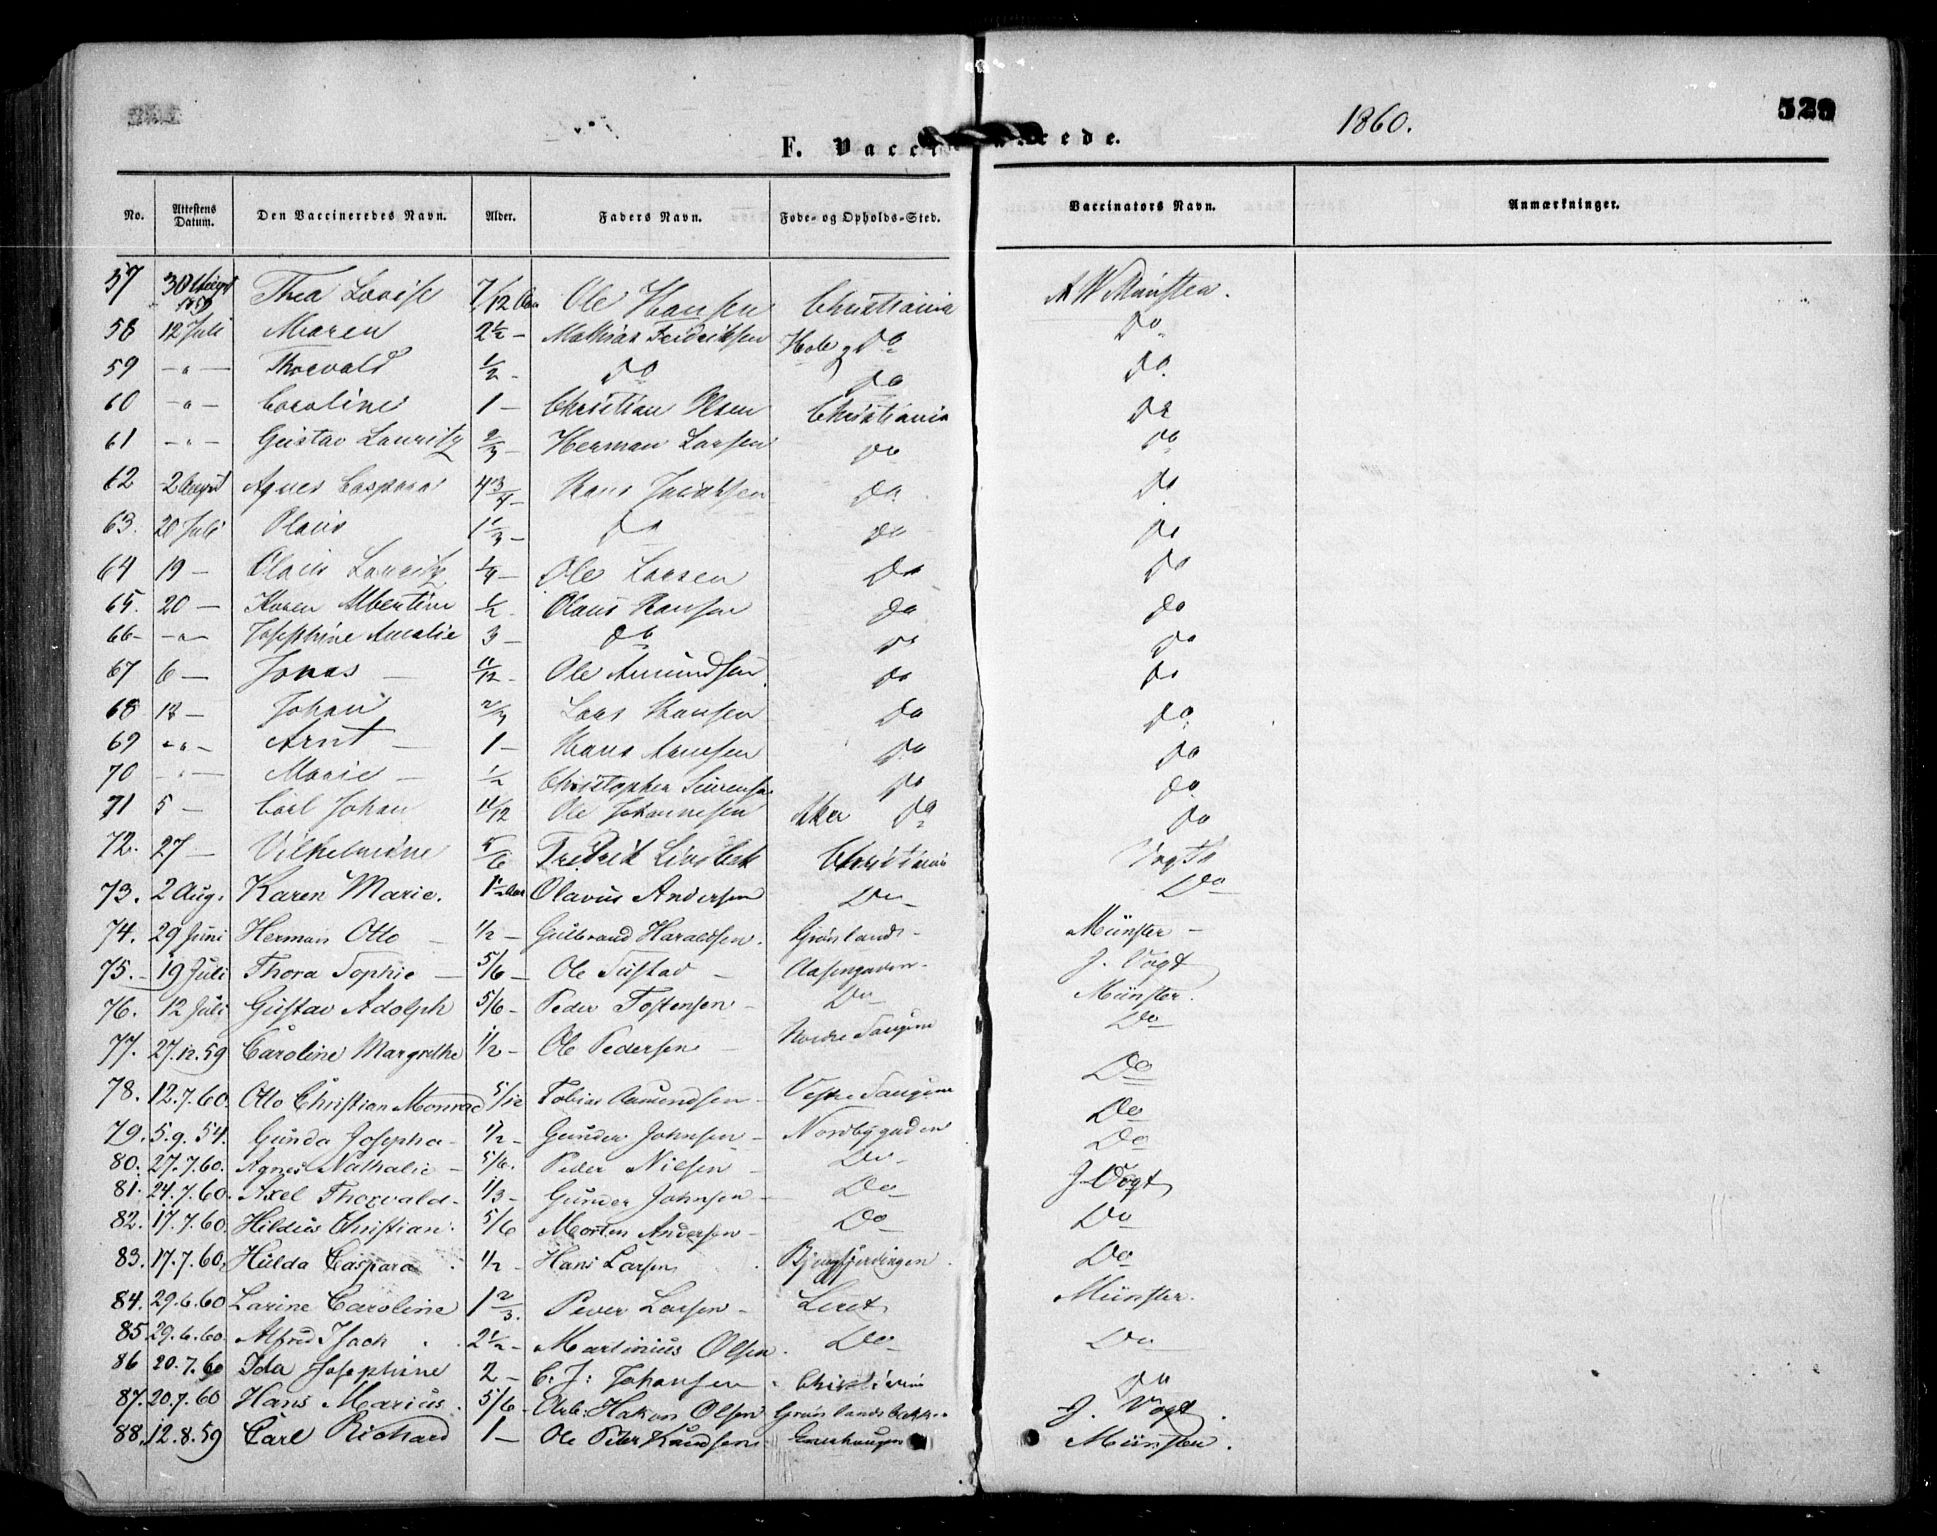 1860.
529
F. Vaccinerede.
No. Attestens Datum. Den Vaccineredes Navn. Alder. Faders Navn. Føde- og Opholds-Sted. Vaccinators Navn. Anmærkninger.
57 30 August 1859 Thea Lovise 7/12 Aar Ole Hansen Christiania Münster.
58 12 Juli Maren 2½ – Mathias Fredriksen Hole Do Do
59 – " – Thorvald ½ – Do Do Do
60 – " – Caroline 1 – Christian Olsen Christiania Do
61 – " – Gustav Lauritz 2/3 – Herman Larsen Do Do
62 2 August Agnes Caspara 4¾ – Hans Jacobsen Do Do
63. 20 Juli Olaus 1⅓ – Do Do Do
64 19 – Olaus Lauritz ¼ – Ole Larsen Do Do
65. 20 – Karen Albertine ½ – Olaus Hansen Do Do
66 – – " – Josephine Amalie 3 – Do Do Do
67 6 – Jonas – 11/12 – Ole Amundsen Do Do
68 18 – Johan 2/3 Lars Hansen Do Do
69 – " – Arnt – 1 – Hans Arnesen Do Do
70 – " – Marie – ½ Christopher Do Do
71 5 – Carl Johan 11/12 Ole Johannesen Aker Do Do
72. 27 – Vilhelmine 5/6 Fredrik Lindbæk Christiania Vogt
73. 2 Aug. Karen Marie. 1½ Aar Olavus Andersen Do – Do
74. 29 Juni Herman Otto – 1/2 – Gulbrand Haraldsen. Grønlands – Münster –
75. – 19 Juli Thora Sophie – 5/6 – Ole Tustad – Aasengaden – J. Vogt
76. 12 Juli Gustav Adolph 5/6 – Peder Tostensen – Do Münster.
77. 27.12.59 Caroline Margrethe 1/2 – Ole Pedersen – Nordre Do
78. 12.7.60. Otto Christian Monrad 5/12 Tobias Amundsen – Vestre Do
79. 5.9.54. Gunda Josepha – 1/2 – Gunder Johnsen – Nordbygaden Do
80. 27.7.60. Agnes Nathalie – 5/6. Peder Nielsen – Do – Do
81. 24.7.60. Axel Thorvald – 1/3 – Gunder Johnsen – Do J. Vogt
82. 17.7.60. Hildus Christian. 5/6 Morten Andersen – Do Do
83. 17.7.60. Hulda Caspara 1/2 – Hans Larsen Bjergfjerdingen. Do
84. 29.6.60 Larine Caroline 1 2/3. Peder Larsen – Leret Münster.
85. 29.6.60. Alfred Isach 2½ – Martinius Olsen. Do – Do
86 20.7.60 Ida Josephine 2 – C. J. Johansen Christiania Do
87. 20.7.60 Hans Marius. 5/6 – Arb: Hakon Olsen Grønlands J. Vogt.
88. 12.8.59 Carl Richard 1 – Ole Peter Knudsen Enerhaugen Münster.